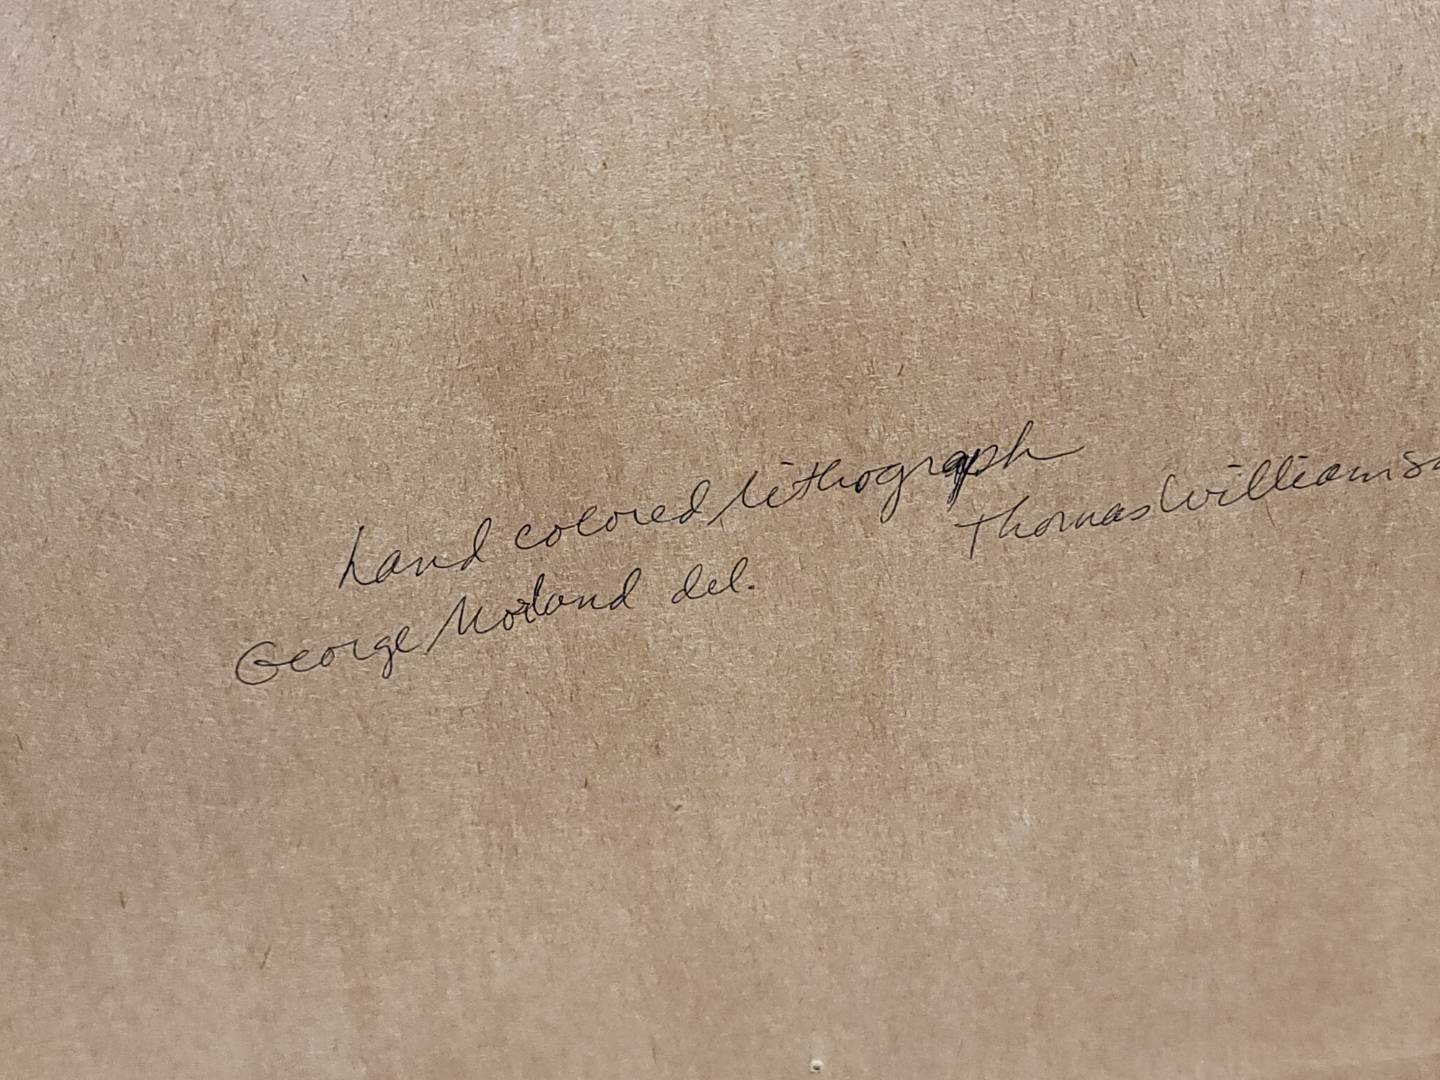 hand colored lithograph
George Morland del. Thomas Williamso